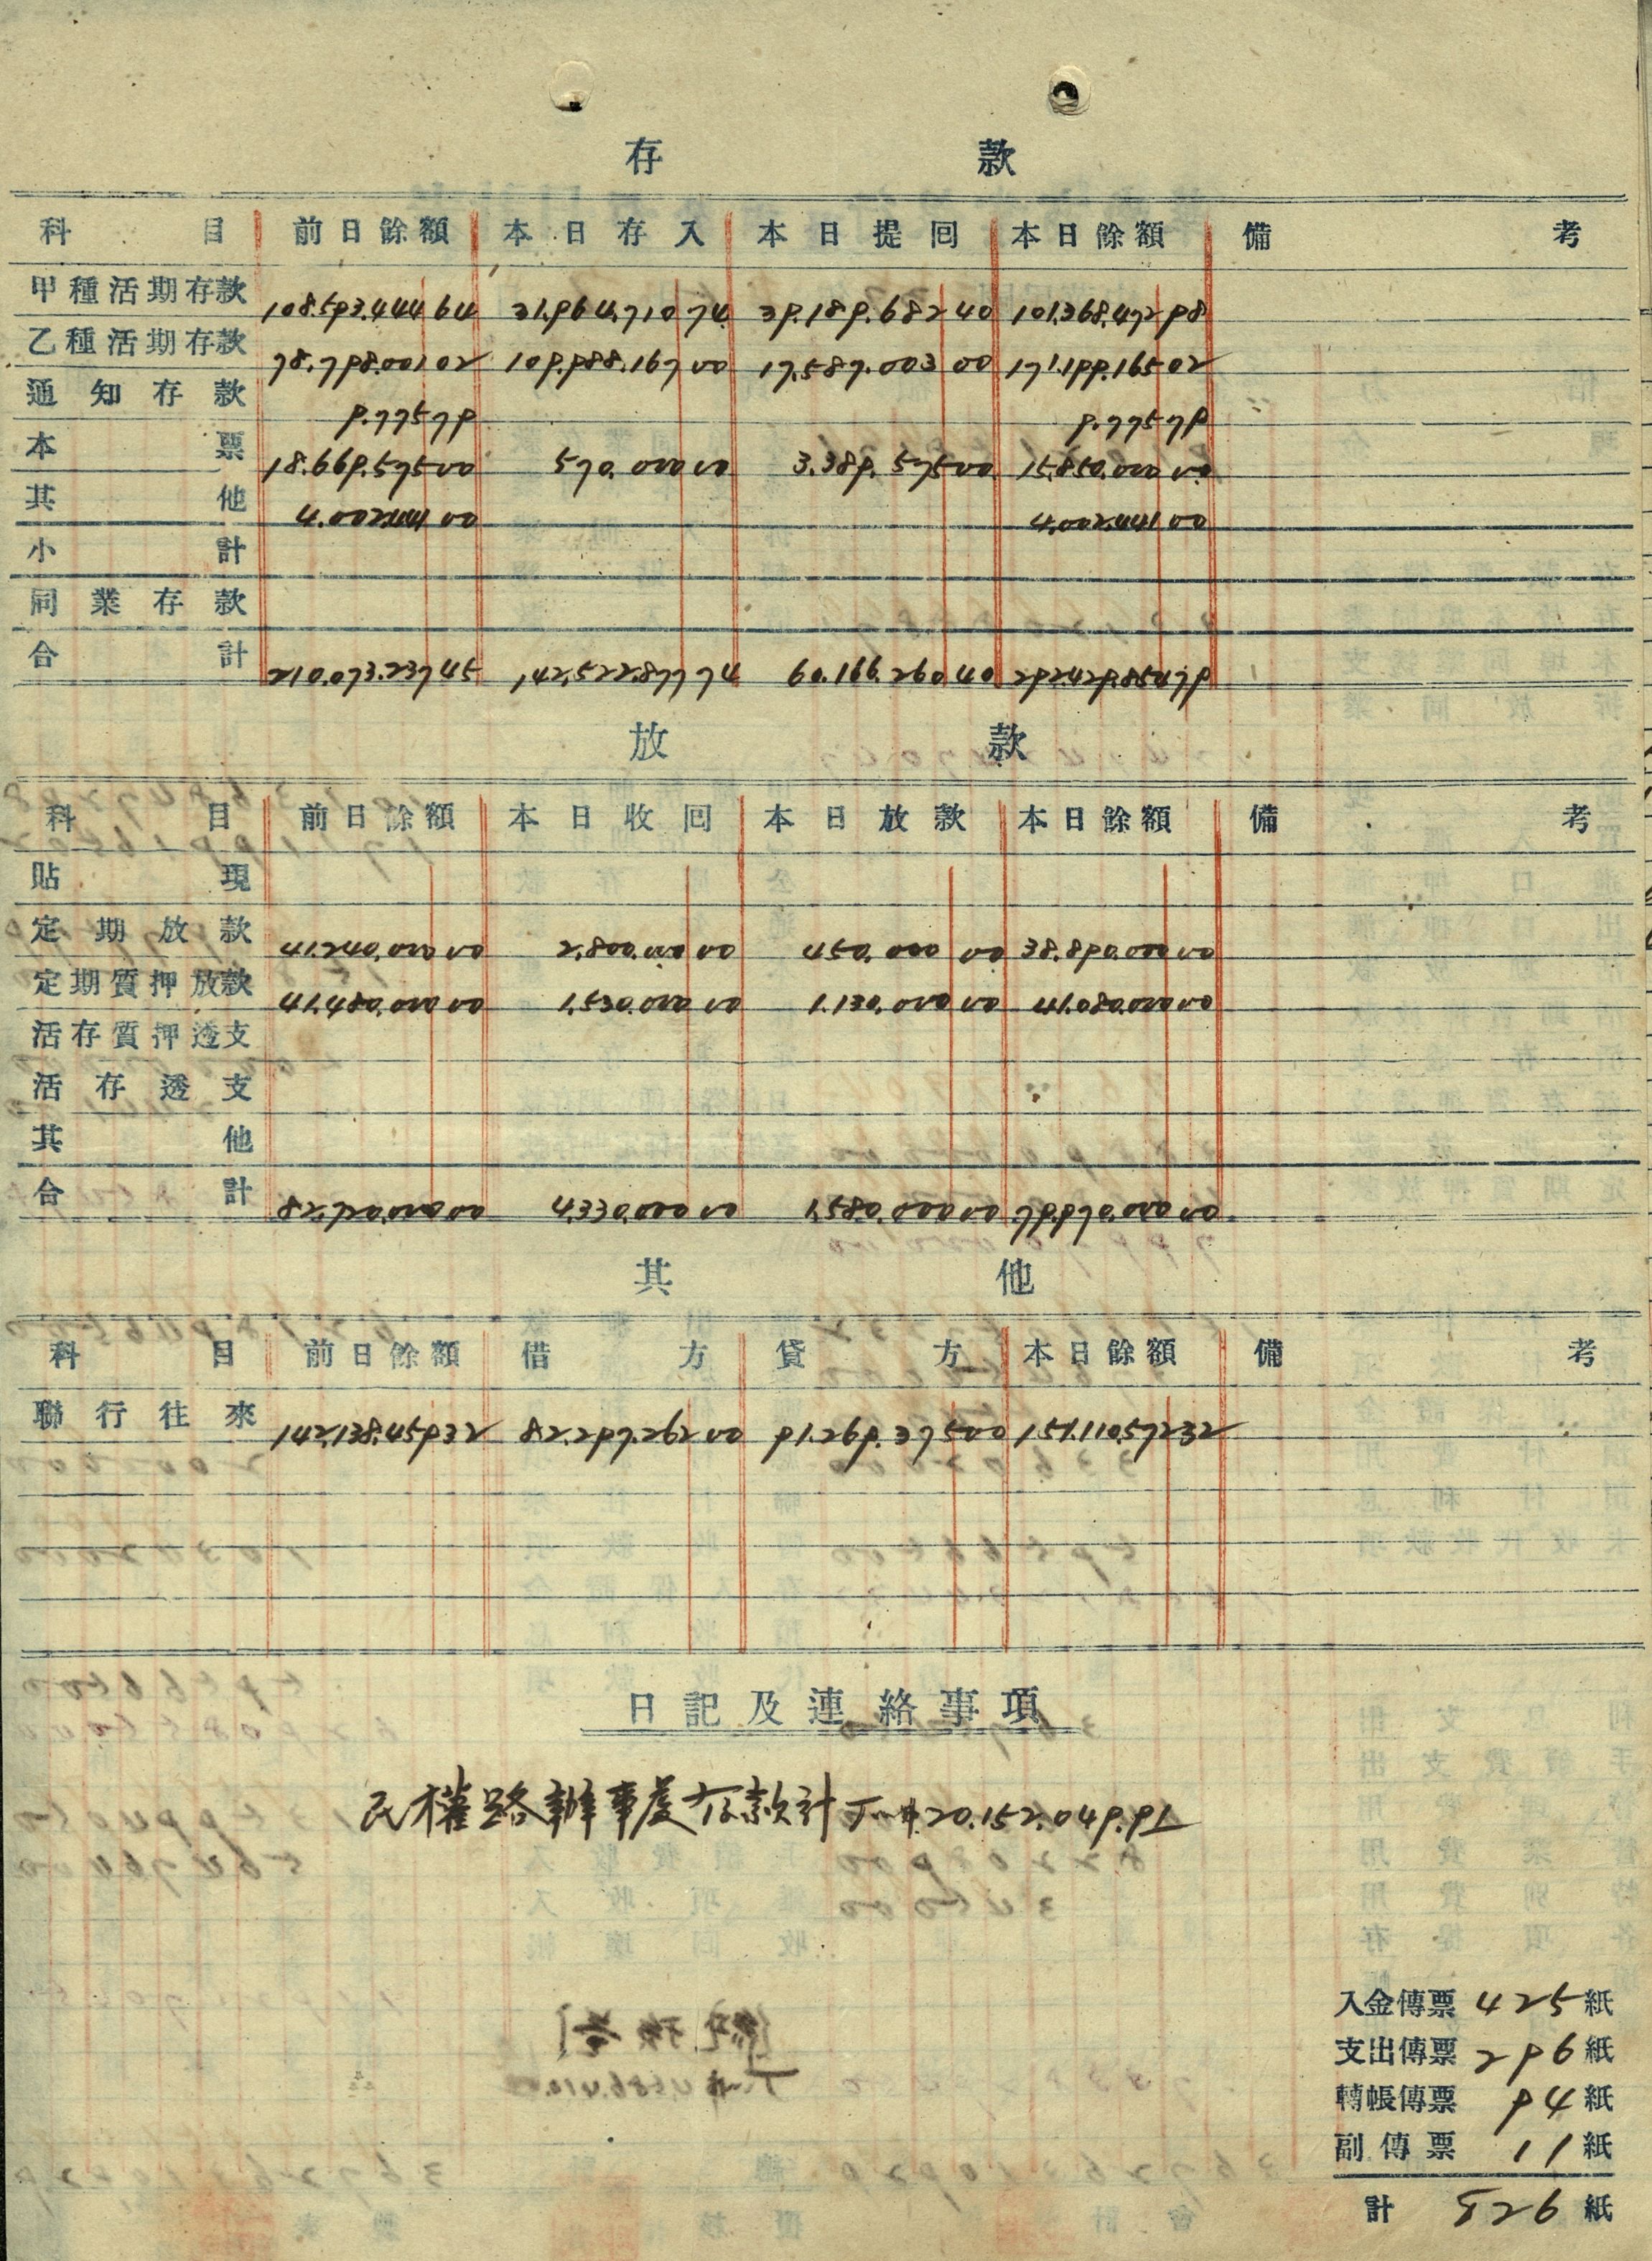 存款
科目 前日餘額 本日存入 本日提回 本日餘額 備考
甲種活期存款 108.593.444 64 31.964.710 74 39.189.682 40 101.368.472 98
乙種活期存款 78.798.001 02 109.988.167 00 17.587.003 00 171.199.165 02
通知存款 9.775 79 9.775 79
本票 18.669.575 00 570.000 00 3.389.575 00 15.850.000 00
其他 4.002.441 00 4.002.441 00
小計
同業存款
合計 210.073.237 45 142.522.877 74 60.166.260 40 292.429.854 79
放款
科目 前日餘額 本日收回 本日放款 本日餘額 備考
貼現
定期放款 41.240.000 00 2.800.000 00 450.000 00 38.890.000 00
定期質押放款 41.480.000 00 1.530.000 00 1.130.000 00 41.080.000 00
活存質押透支
活存透支
其他
合計 82.720.000 00 4.330.000 00 1.580.000 00 79.970.000 00
其他
科目 前日餘額 借方 貸方 本日餘額 備考
聯行往來 142.138.459 32 82.297.262 00 91.269.375 00 151.110.572 32
日記及連絡事項
民權路辦事處存款計 20.152.049.91
入金傳票 425 紙
支出傳票 296 紙
轉帳傳票 94 紙
副傳票 11 紙
計 826 紙